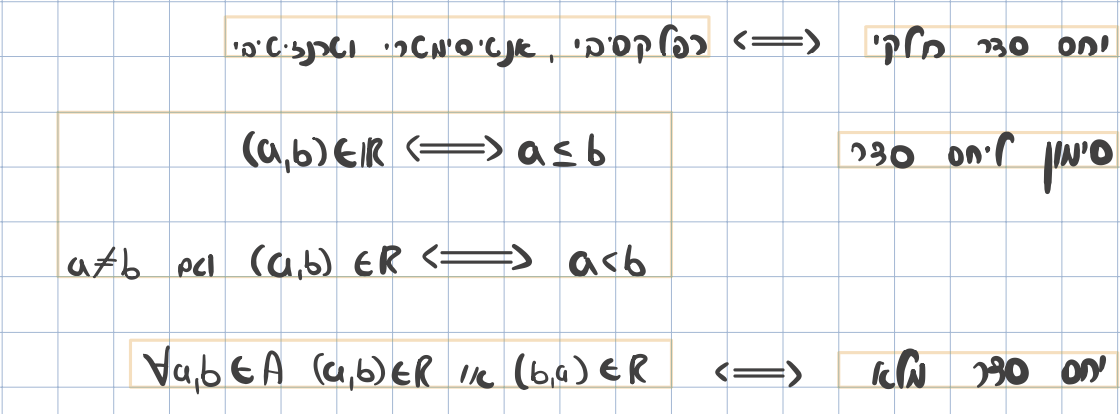 יחס סדר חלקי ⟺ רפלקסיבי, אנטיסימטרי וטרנזיטיבי
סימון ליחס סדר (a,b)∈ℝ ⟺ a≤b
a≠b וגם (a,b)∈R ⟺ a<b
יחס סדר מלא ⟺ ∀a,b∈A (a,b)∈R או (b,a)∈R